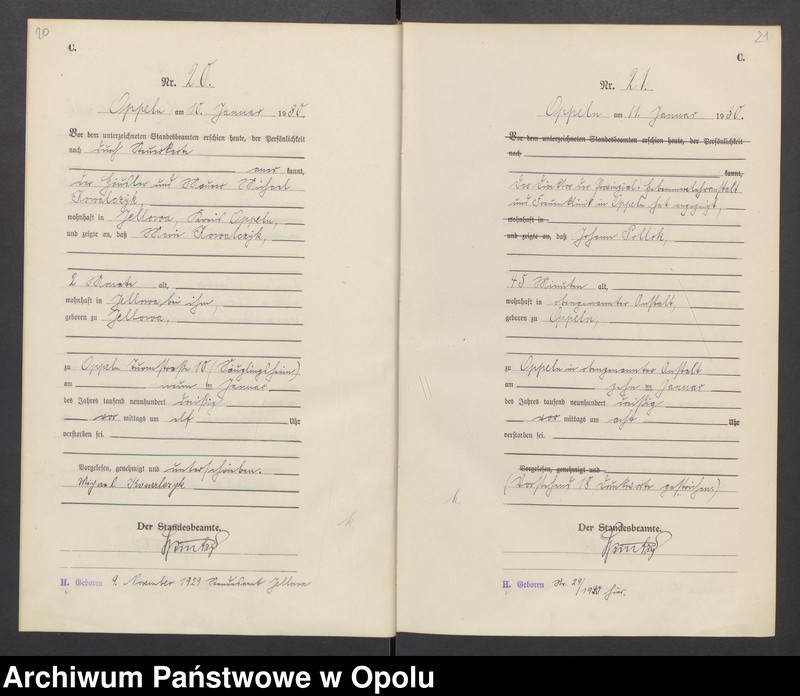 20
C.
Nr. 20.
Oppeln am 10. Januar 1930.
Vor dem unterzeichneten Standesbeamten erschien heute, der Persönlichkeit
nach durch Steuerkarte
aner kannt,
der Häusler und Maurer Michael
Kowalczyk
wohnhaft in Jellowa, Kreis Oppeln,
und zeigte an, daß Marie Kowalczyk,
2 Monate alt,
wohnhaft in Jellowa, bei ihm,
geboren zu Jellowa,
zu Oppeln Turmstraße 10 (Säuglingsheim)
am neun ten Januar
des Jahres tausend neunhundert dreißig
vor mittags um elf Uhr
verstorben sei.
Vorgelesen, genehmigt und unterschrieben.
Michael Kowalczyk
Der Standesbeamte.
H. Geboren 9. November 1929 Standesamt Jellowa
21
C.
Nr. 21.
Oppeln am 11. Januar 1930.
Vor dem unterzeichneten Standesbeamten erschien heute, der Persönlichkeit
nach
kannt,
Der Direktor der Provinzial-Hebammenlehranstalt
und Frauenklinik in Oppeln hat angezeigt,
wohnhaft in
und zeigte an, daß Johann Pollok,
45 Minuten alt,
wohnhaft in obengenannter Anstalt,
geboren zu Oppeln,
zu Oppeln in obengenannter Anstalt
am zehn ten Januar
des Jahres tausend neunhundert dreißig
vor mittags um acht Uhr
verstorben sei.
Vorgelesen, genehmigt und
(Vorstehend 18 Druckworte gestrichen.)
Der Standesbeamte.
H. Geboren Nr. 29/1930 hier.
Archiwum Państwowe w Opolu